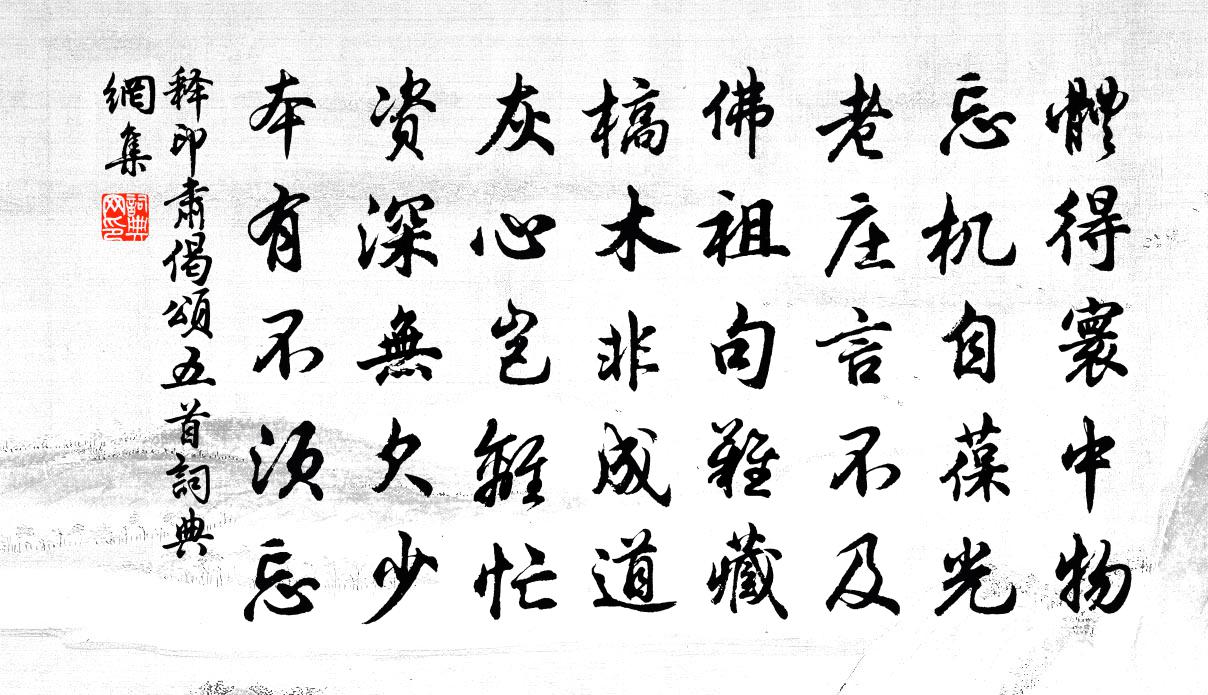 體得寰中物
忘机自葆光
老庄言不及
佛祖句難藏
槁木非成道
灰心岂離忙
资深無欠少
本有不须忘
释印肃偈頌五首詞典
網集
詞典网印